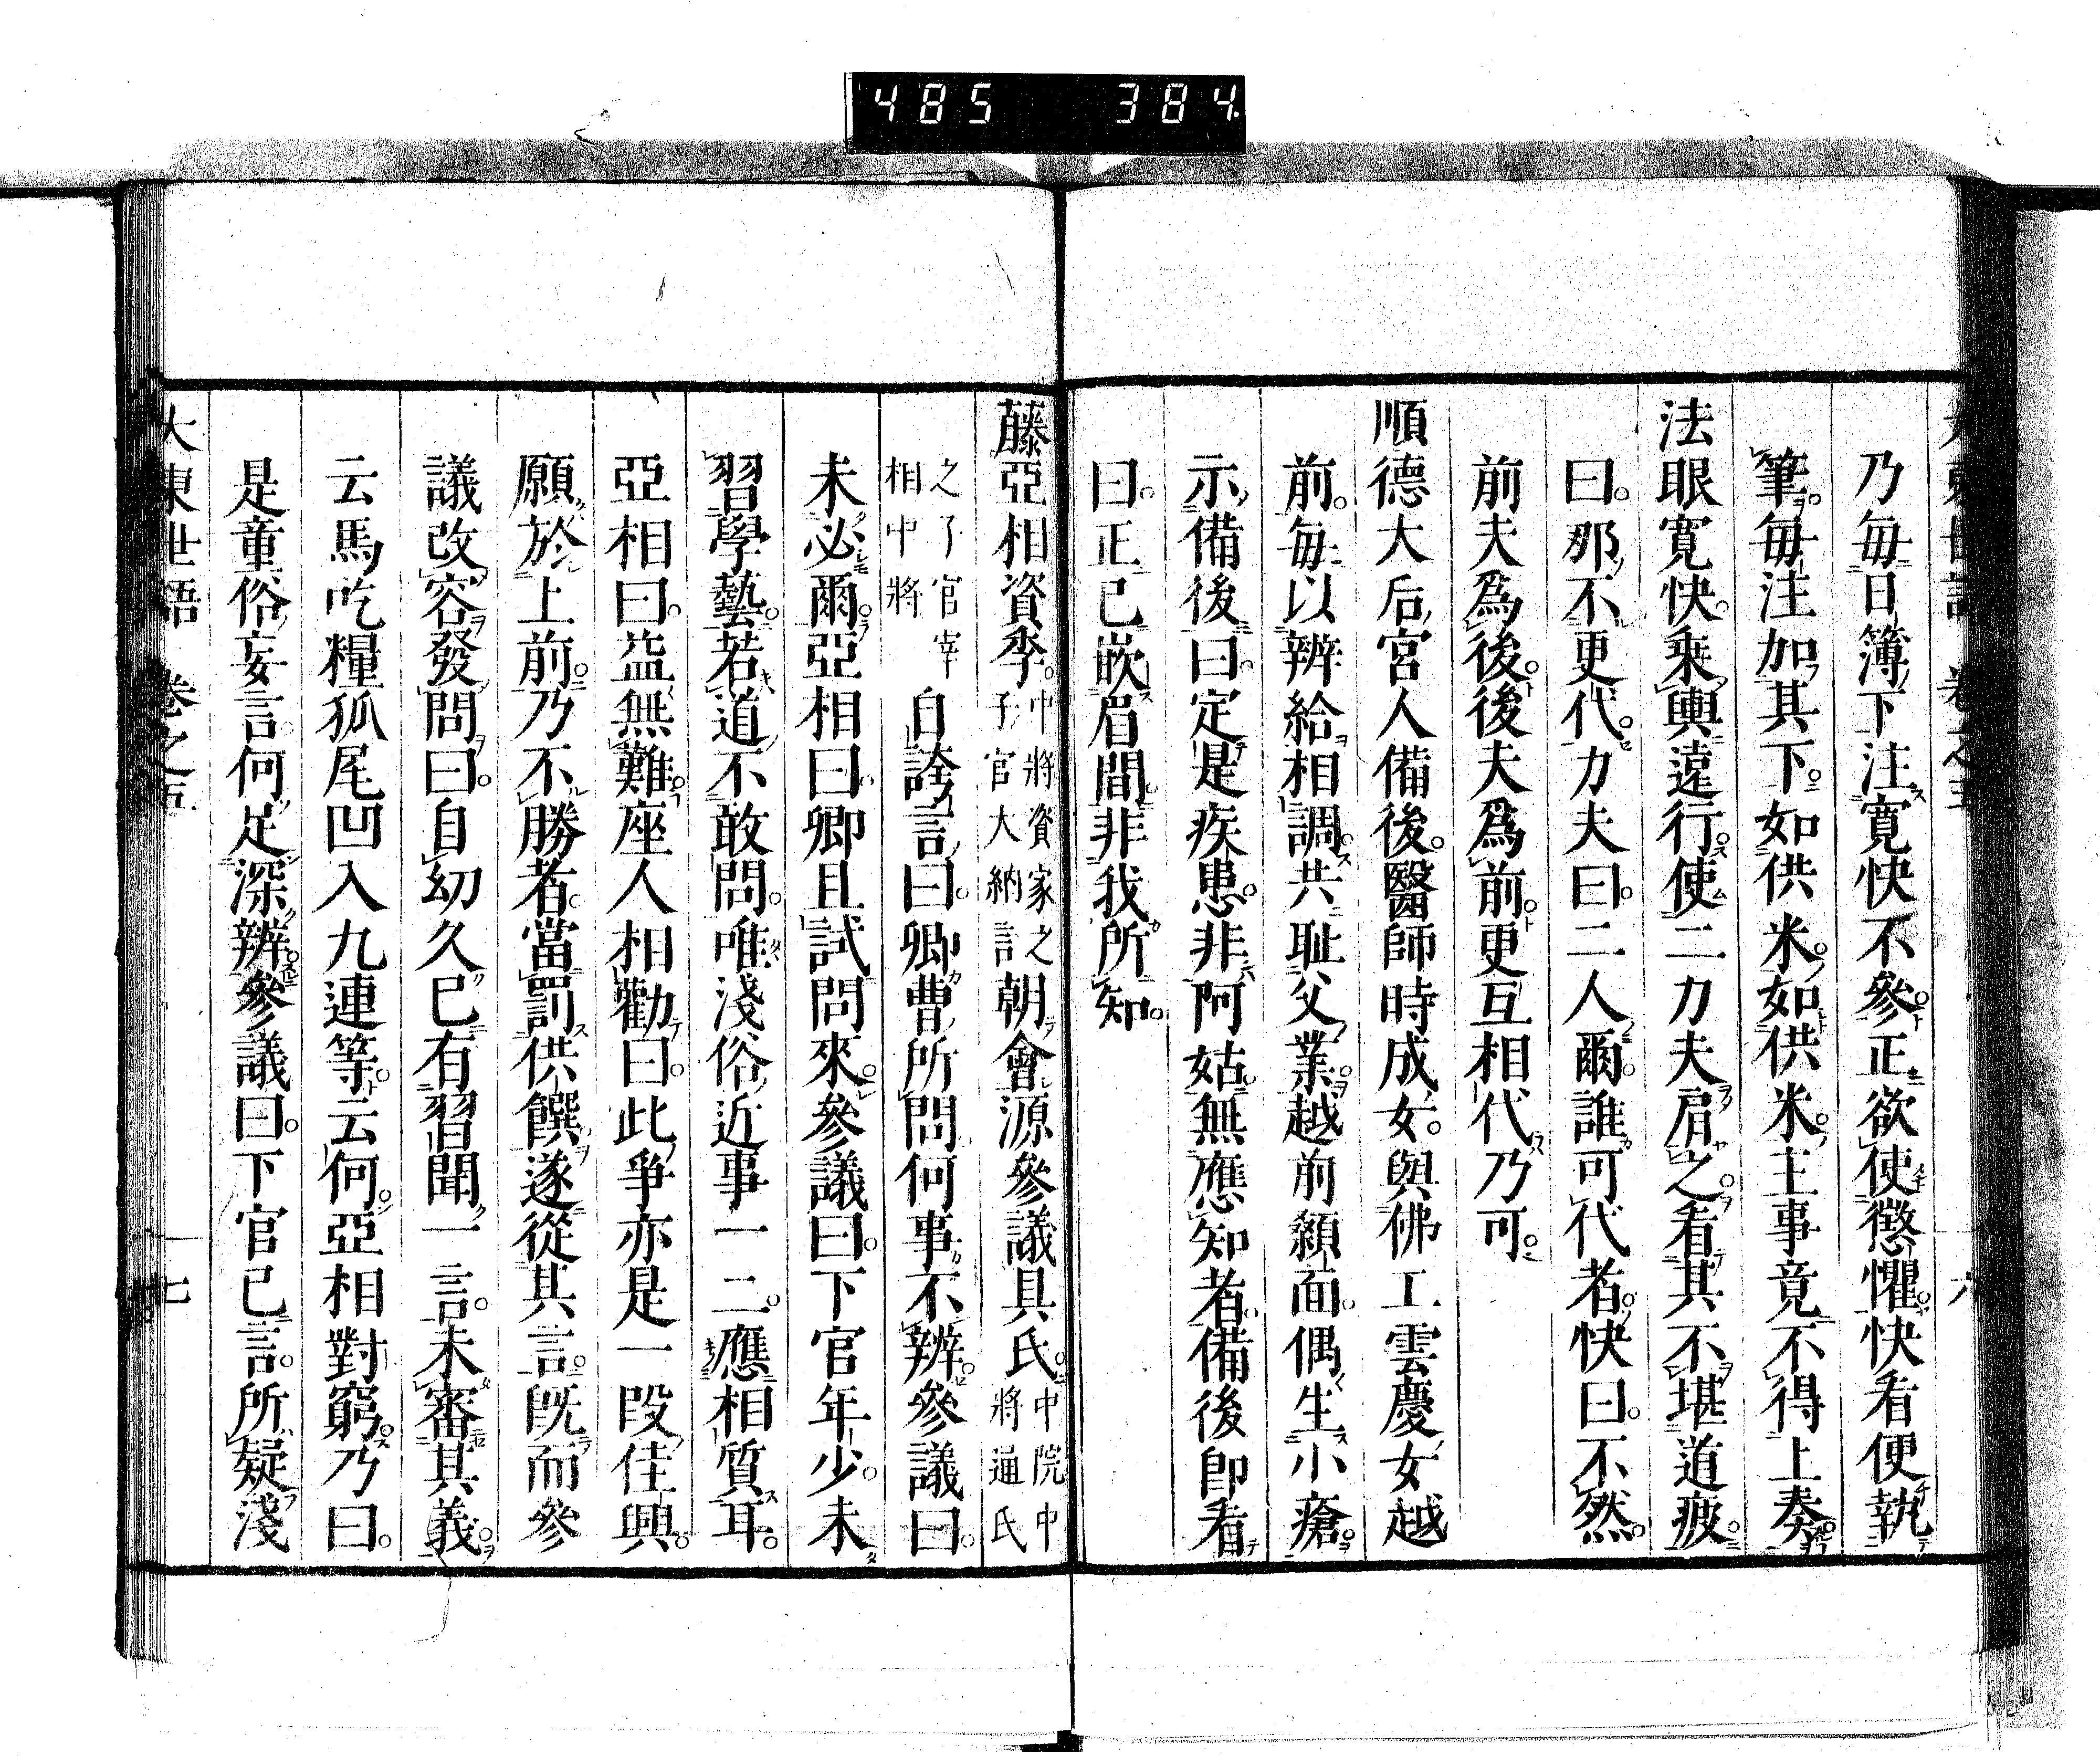 485 384
乃毎日簿下注寛快不參正欲使懲懼快看便執
筆毎注加其下如供米如供米主事竟不得上奏
法眼寛快乗輿遠行使二力夫肩之看其不堪道疲
曰那不更代力夫曰二人爾誰可代者快曰不然
前夫爲後後夫爲前更互相代乃可
順德大后宮人備後醫師時成女與佛工雲慶女越
前毎以辨給相調共耻父業越前額面偶生小瘡
示備後曰定是疾患非阿姑無應知者備後卽看
曰正已嵌眉間非我所知
藤亞相資季中將資家之子官大納言朝會源參議具氏中院中將通氏
之子官宰相中將自誇言曰卿曹所問何事不辨參議曰
未必爾亞相曰卿且試問來參議曰下官年少未
習學藝若道不敢問唯淺俗近事一二應相質耳
亞相曰益無難座人相勸曰此爭亦是一段佳興
願於上前乃不勝者當罰供饌遂從其言既而參
議改容發問曰自幼久已有習聞一言未審其義
云馬吃糧狐尾凹入九連等云何亞相對窮乃曰
是童俗妄言何足深辨參議曰下官已言所疑淺
大東世語 卷之五 七